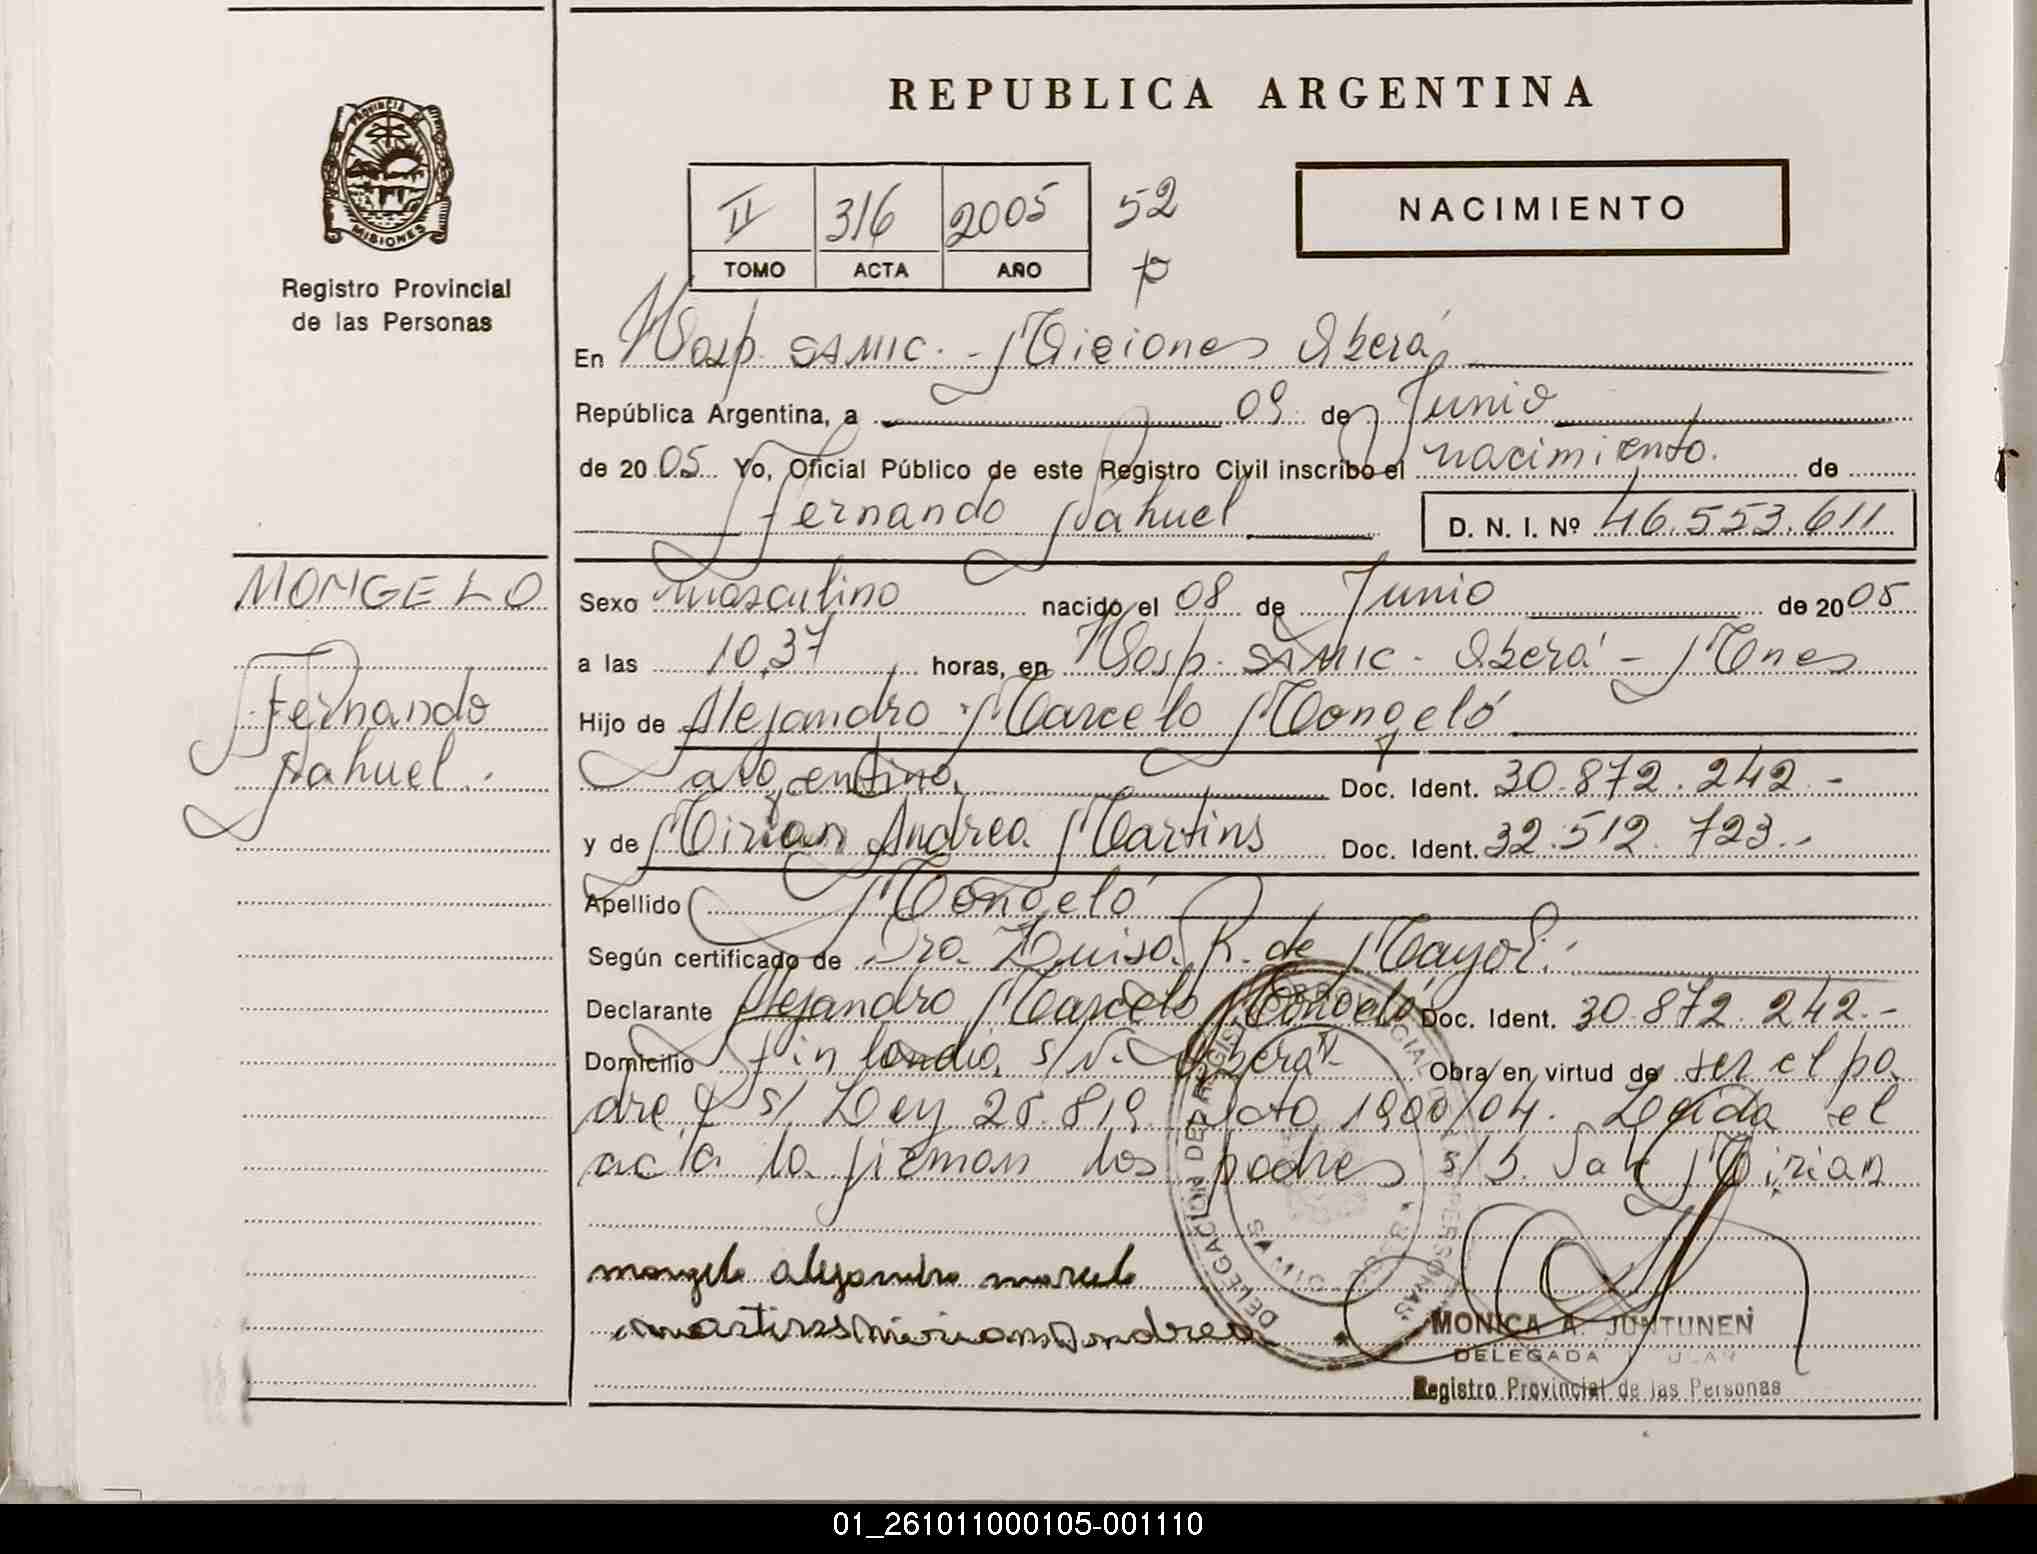 REPUBLICA ARGENTINA
PROVINCIA DE
MISIONES
Registro Provincial
de las Personas
II 316 2005 52
TOMO ACTA AÑO
NACIMIENTO
En Hosp. SAMIC. - Misiones Oberá,
República Argentina, a 09 de Junio
de 2005 Yo, Oficial Público de este Registro Civil inscribo el nacimiento. de
Fernando Nahuel D. N. I. Nº 46.553.611
MONGELO
Fernando
Nahuel.
Sexo masculino nacido el 08 de Junio de 2005
a las 10,37 horas, en Hosp. SAMIC - Oberá - Mnes
Hijo de Alejandro Marcelo Mongeló
argentino, Doc. Ident. 30.872.242.-
y de Mirian Andrea Martins Doc. Ident. 32.512.723.-
Apellido Mongeló
Según certificado de Dra. Luisa R. de Mayol.
Declarante Alejandro Marcelo Mongeló Doc. Ident. 30.872.242.-
Domicilio Finlandia, s/N. Oberá Obra en virtud de ser el pa
dre y s/ Ley 25.819. Dcto 1900/04. Leída el
acta la firman los padres s/ Mirian
mongelo alejandro marcelo
martins mirian andrea
DELEGACION DEL REGISTRO PROVINCIAL DE LAS PERSONAS
MONICA A. JUNTUNEN
DELEGADA
Registro Provincial de las Personas
01_261011000105-001110